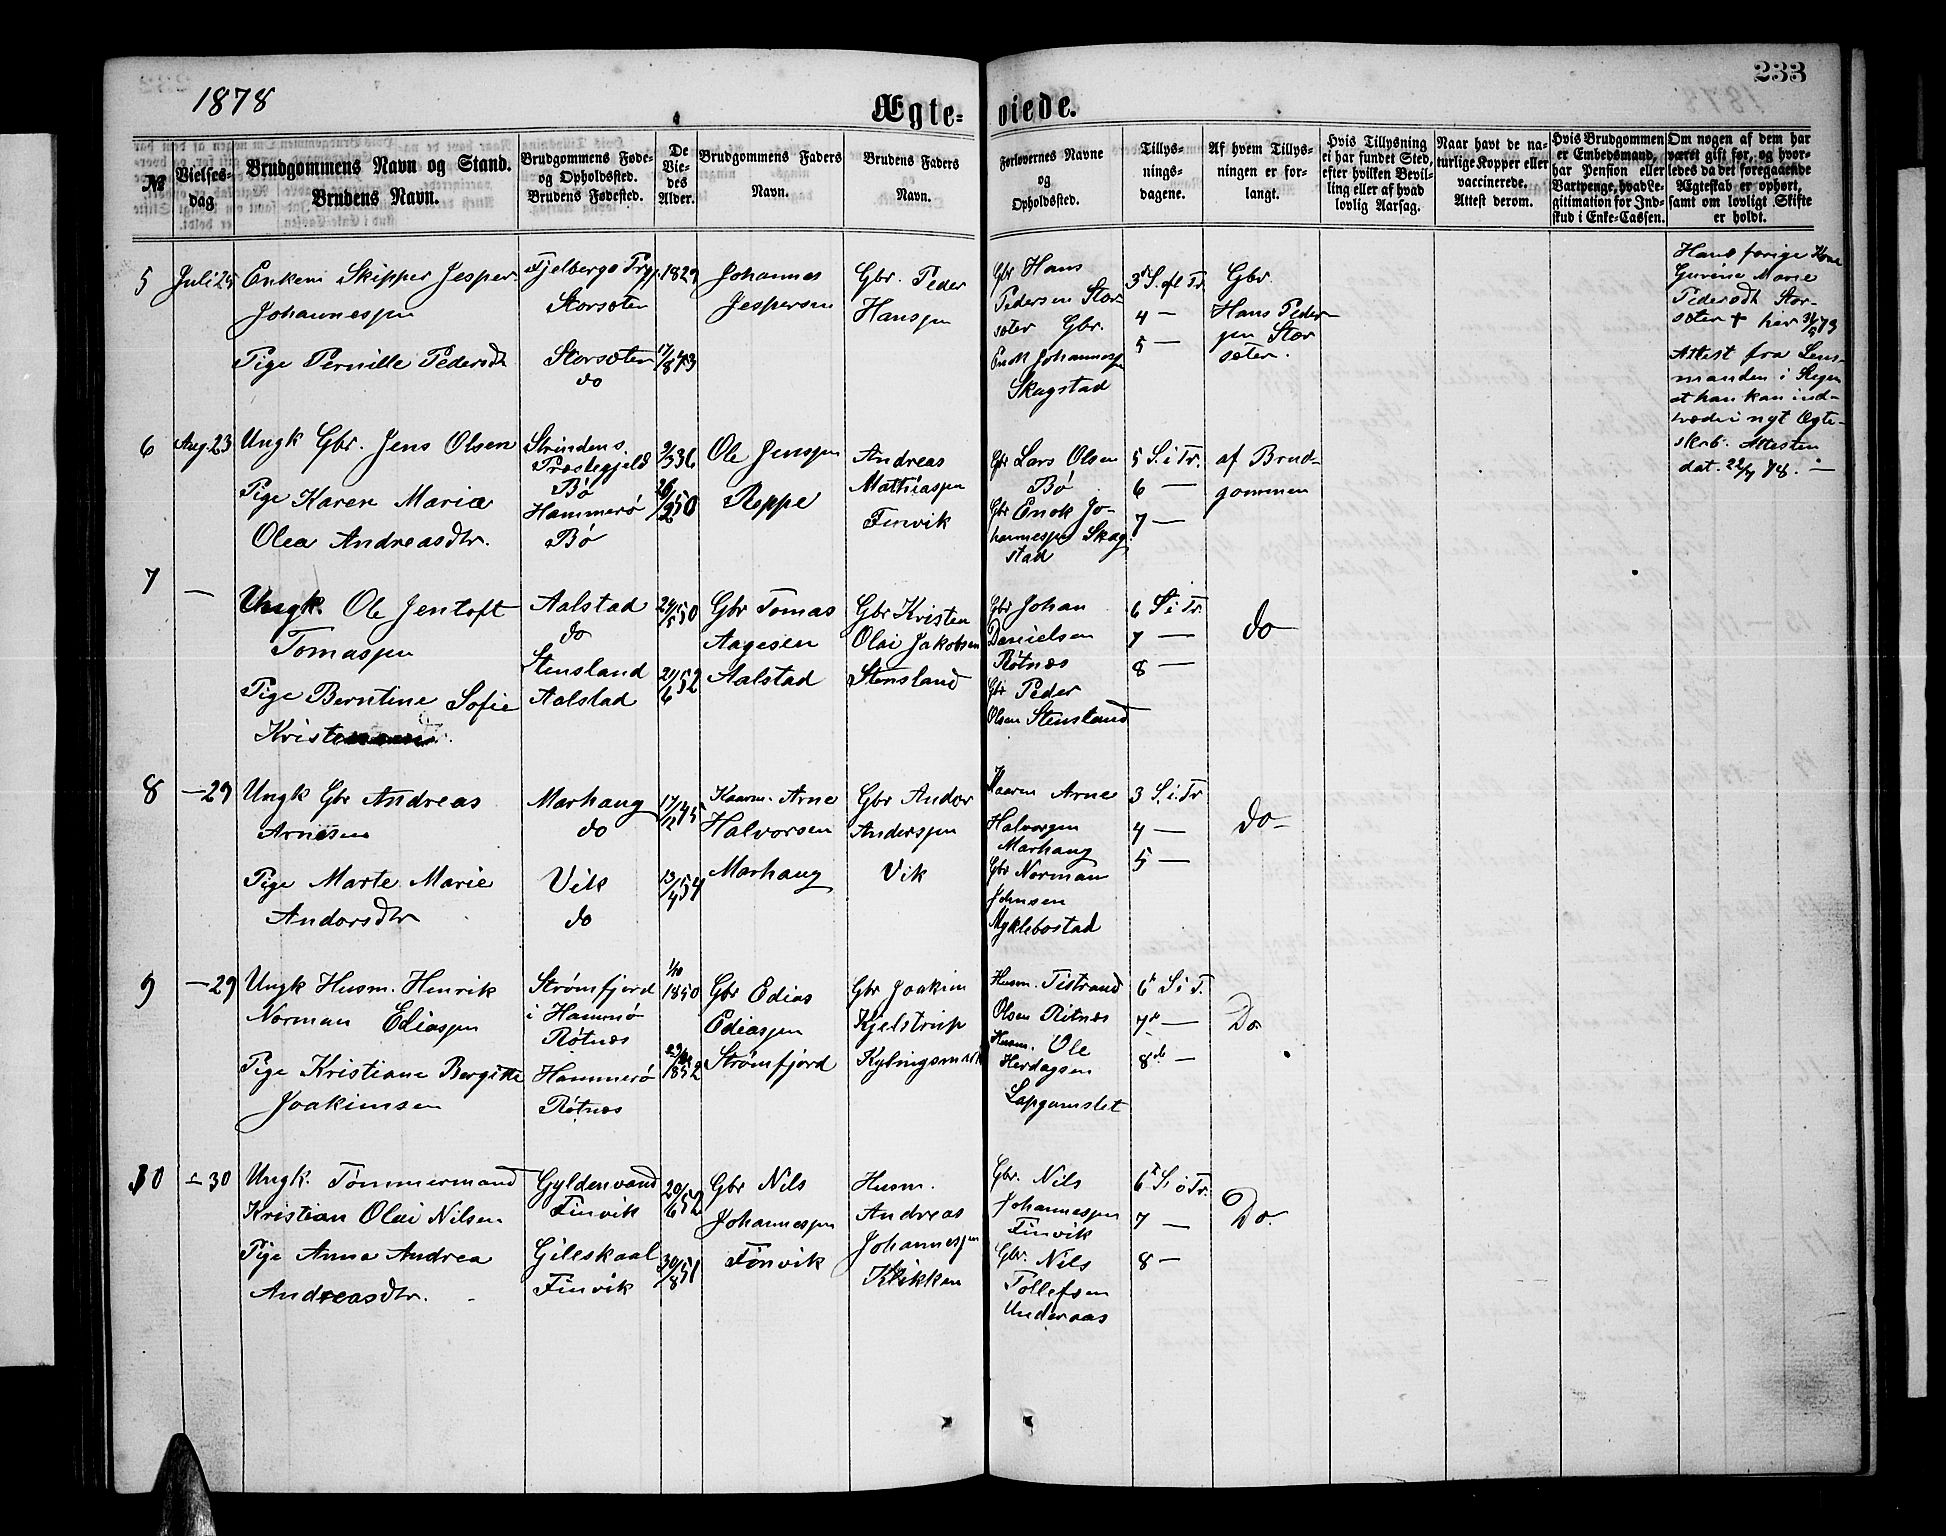 1878
Ægte-
viede.
233
№
Vielses-
dag
Brudgommens Navn og Stand.
Brudens Navn.
Brudgommens Føde-
og Opholdssted.
Brudens Fødested.
De
Vie-
des
Alder.
Brudgommens Faders
Navn.
Brudens Faders
Navn.
Forlovernes Navne
og
Opholdssted.
Tillys-
nings-
dagene.
Af hvem Tillys-
ningen er for-
langt.
Hvis Tillysning
ei har fundet Sted,
efter hvilken Bevil-
ling eller af hvad
lovlig Aarsag.
Naar havt de na-
turlige Kopper eller
vaccinerede.
Attest derom.
Hvis Brudgommen
er Embedsmand,
har Pension eller
Vartpenge, hvad Le-
gitimation for Ind-
skud i Enke-Cassen.
Om nogen af dem har
været gift før, og hvor-
ledes da det foregaaende
Ægteskab er ophørt,
samt om lovligt Skifte
er holdt.
5
Juli 25
Enkem Skipper Jesper
Johannesen
Pige Pernille Pedersdt
Storsæter
Storsæter
do
1829
17/8 43
Johannes
Jespersen
Gbr. Peder
Hansen
Gbr Hans
Pedersen Stor-
sæter Gbr.
Enok Johannesen
Skagstad
3d S. ef Tr.
4 —
5 —
Gbr.
Hans Peder-
sen Stor
sæter.
Hans forige Kone
Gurine Marie
Pedersdt Stor-
sæter † her
Attest fra Lens-
manden i Stegen
at han kan ind-
træde i nyt Ægte-
skab. Attesten
6
Aug. 23
Ungk Gbr. Jens Olsen
Pige Karen Marie
Olea Andreasdtr.
Strindens
Præstegjeld
Bø
Hammerø
Bø
Ole Jensen
Reppe
Andreas
Mathiasen
Finvik
Gbr Lars Olsen
Bø
Gbr Enok Jo-
hannesen Skag-
stad
5 S. i Tr.
6 —
7 —
af Brud-
gommen
7
—
Ungk. Ole Jentoft
Tomassen
Pige Berntine Sofie
Aalstad
do
Stensland
Aalstad
24/5 50
24/6 52
Gbr Tomas
Aagesen
Aalstad
Gbr Kristen
Olai Jakobsen
Stensland
Gbr Johan
Danielsen
Røtnæs
Gbr Peder
Olsen Stensland
6 S i Tr.
7 —
8 —
do
8
— 29
Ungk Gbr Andreas
Arnesen
Pige Marte Marie
Andorsdtr
Marhaug
do
Vik
do
17/12 45
13/4 54
Kaarm. Arne
Halvorsen
Marhaug
Gbr Andor
Andersen
Vik
Kaarm Arne
Halvorsen
Marhaug
Gbr Norman
Johnsen
Myklebostad
3 S. i Tr
4 —
5 —
do
9
— 29
Ungk Husm. Henrik
Norman Ediassen
Pige Kristiane Bergitte
Joakimsen
Strømfjord
i Hammerø
Røtnæs
Hammerø
Røtnæs
1/10
1850
1852
Gbr Edias
Ediassen
Strømfjord
Gbr Joakim
Kjelstrup
Kylingsmark
Husm. Tistrand
Olsen Ritnæs
Husm. Ole
Herdagsen
6t S i T.
7de —
8de —
Do
10
— 30
Ungk. Tømmermand
Kristian Olai Nilsen
Pige Anna Andrea
Andreasdtr.
Gyldenvand
Finvik
Gileskaal
Finvik
20/6 52
30/8 51
Gbr Nils
Johannesen
Finvik
Husm.
Andreas
Johannesen
Klikken
Gbr. Nils
Johannesen
Finvik
Gbr. Nils
Tollefsen
Underaas
6t S. i Tr.
7 —
8 —
Do.